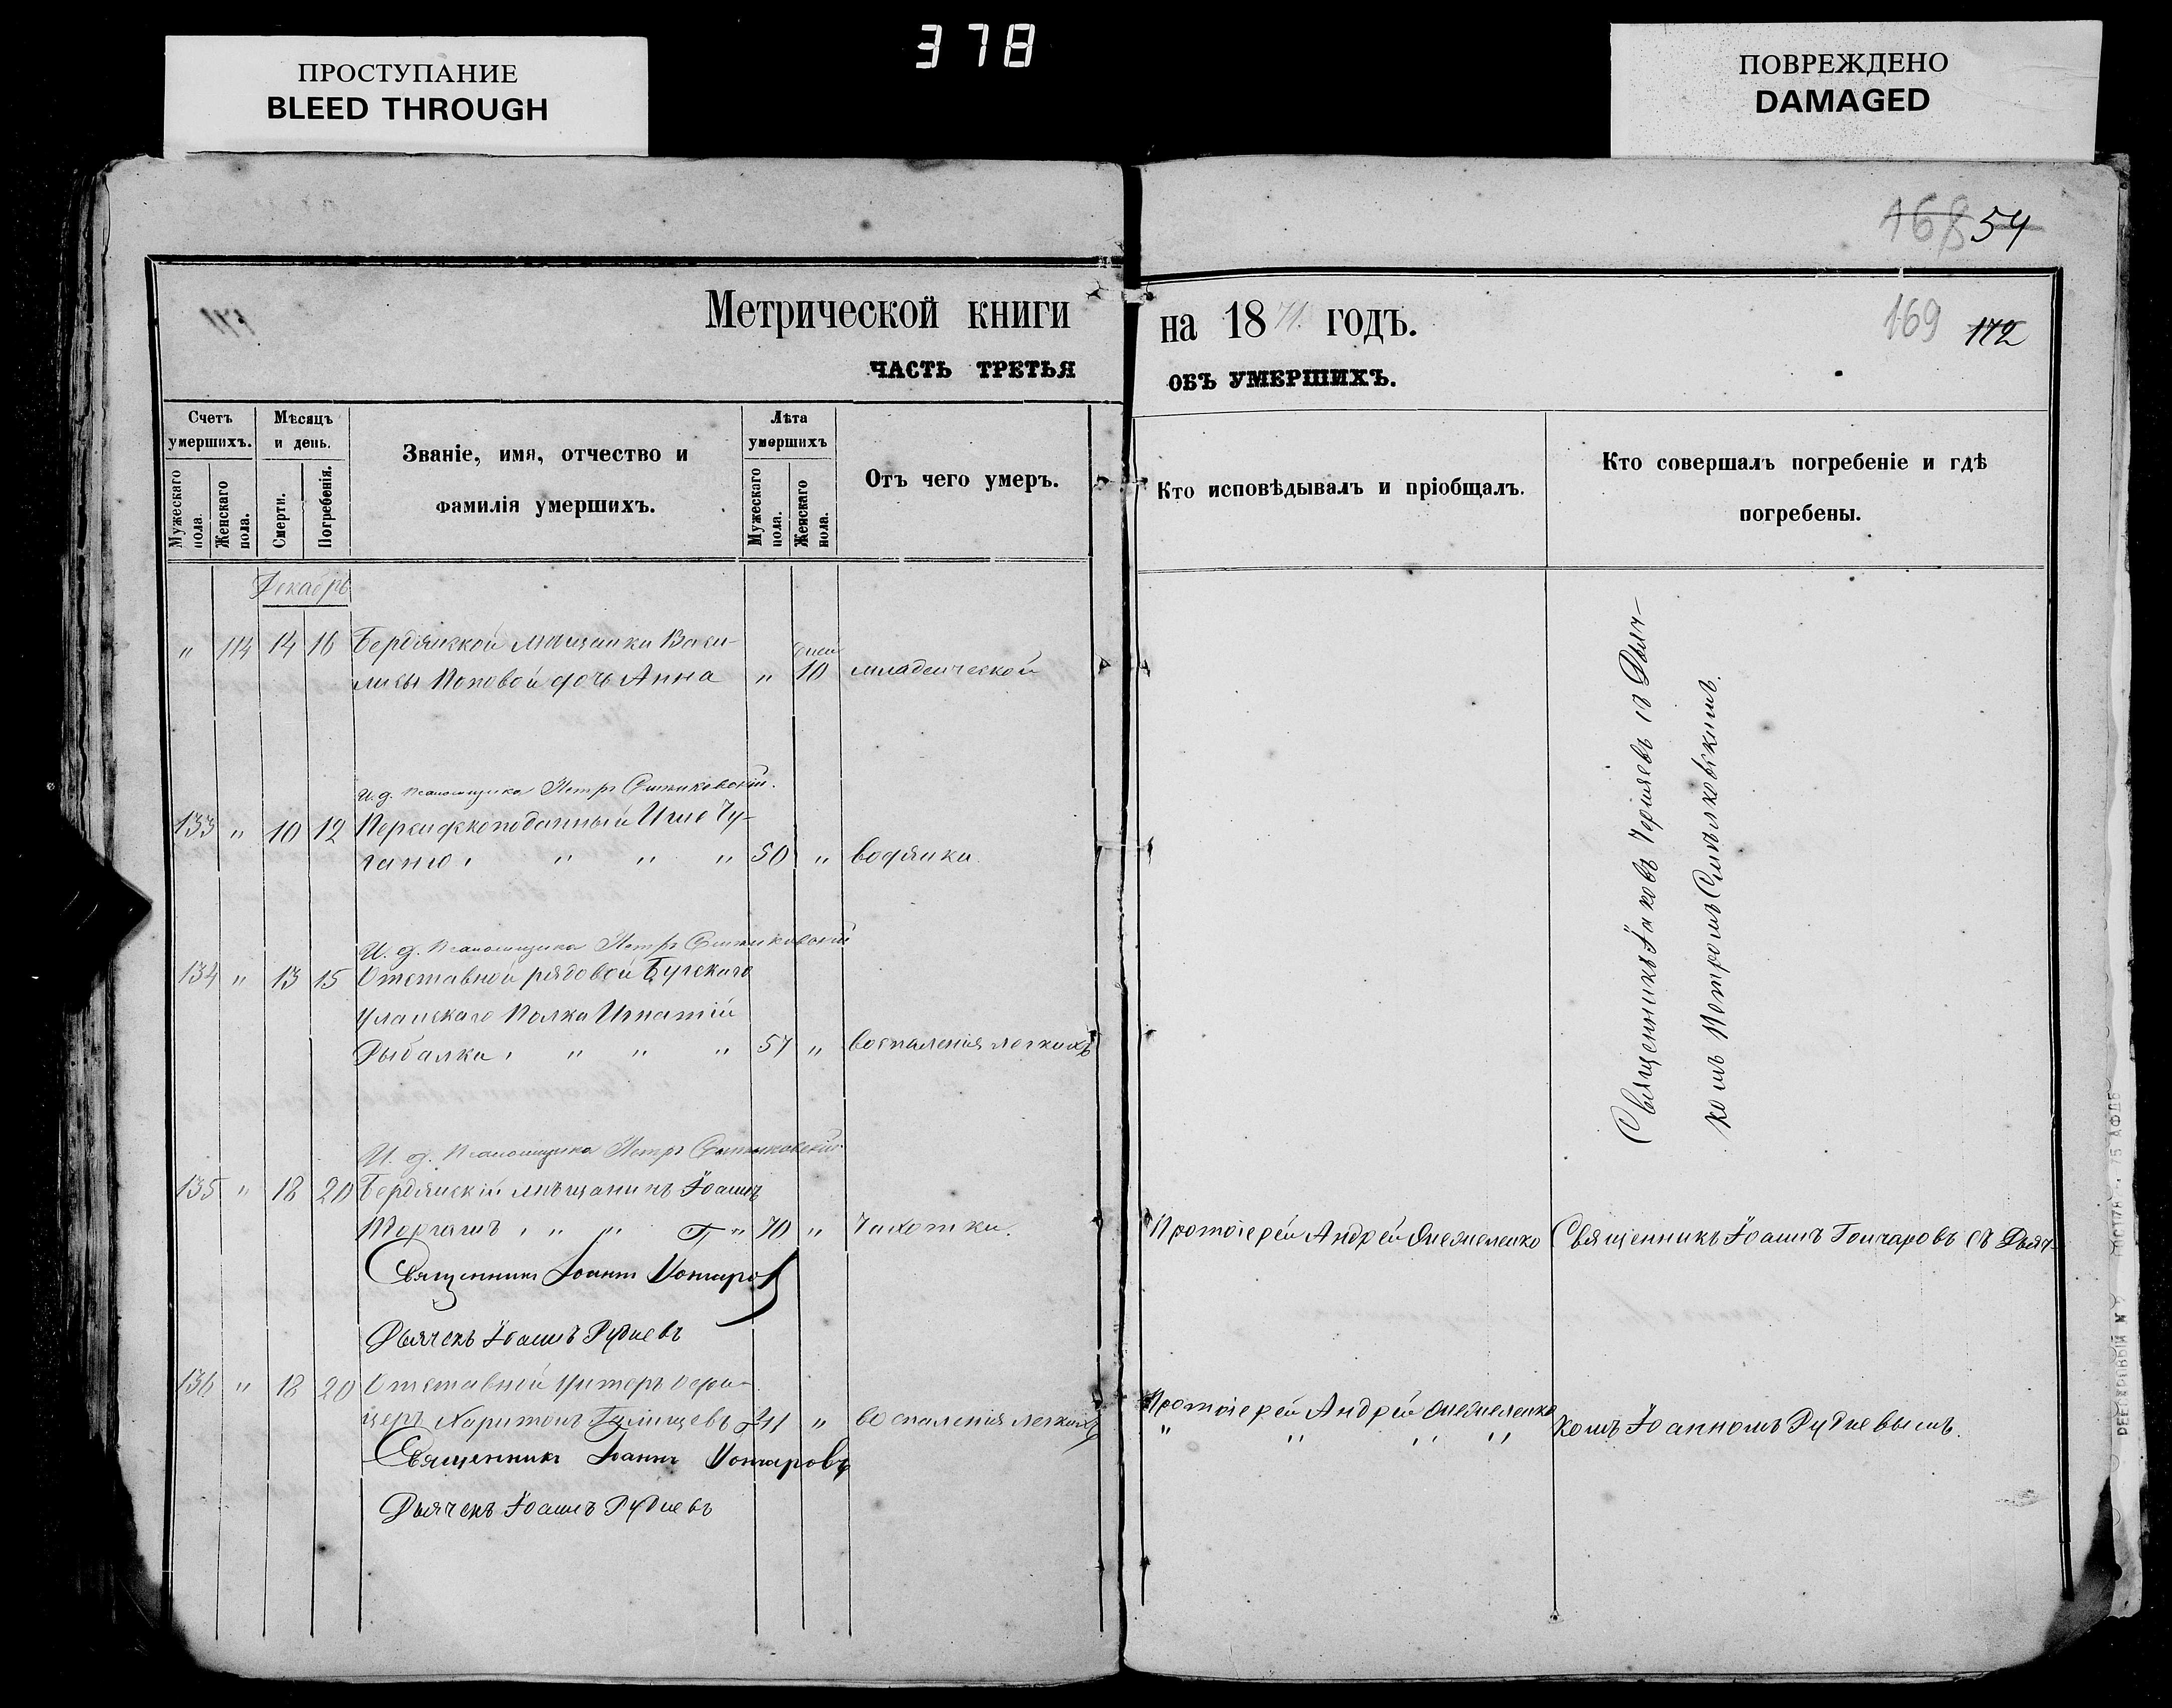 378
ПРОСТУПАНИЕ
BLEED THROUGH
ПОВРЕЖДЕНО
DAMAGED
168 54
Метрической книги на 1871 годъ.
169 172
ЧАСТЬ ТРЕТЬЯ ОБЪ УМЕРШИХЪ.
Счетъ умершихъ.
Мужескаго пола.
Женскаго пола.
Мѣсяцъ и день.
Смерти.
Погребенія.
Званіе, имя, отчество и
фамилія умершихъ.
Лѣта умершихъ
Мужескаго пола.
Женскаго пола.
Отъ чего умеръ.
Кто исповѣдывалъ и пріобщалъ.
Кто совершалъ погребеніе и гдѣ
погребены.
Декабрь
" 114 14 16 Бердянской мѣщанки Васи-
лисы Поповой дочь Анна " дней 10 младенческой
И. д. Псаломщика Петръ
133 " 10 12 Персидскоподанный
" " " 50 " водянки
И. д. Псаломщика Петръ
134 " 13 15 Отставной рядовой Бугскаго
Уланскаго Полка Игнатій
Рыбалка " " " 57 " воспаленія легкихъ
И. д. Псаломщика Петръ
Священникъ Іаковъ съ Дьяч-
комъ Петромъ
135 " 18 20 Бердянскій мѣщанинъ Іоаннъ
" " " 70 " Чахотки. Протоіерей Андрей Священникъ Іоаннъ Гончаровъ съ Дьяч-
Священникъ Іоаннъ Гончаровъ
Дьячекъ Іоаннъ Рудневъ
136 " 18 20 Отставной Унтеръ офи-
церъ Харитонъ " воспаленія легкихъ Протоіерей Андрей
" " " " комъ Іоанномъ Рудневымъ.
Священникъ Іоаннъ Гончаровъ
Дьячекъ Іоаннъ Рудневъ